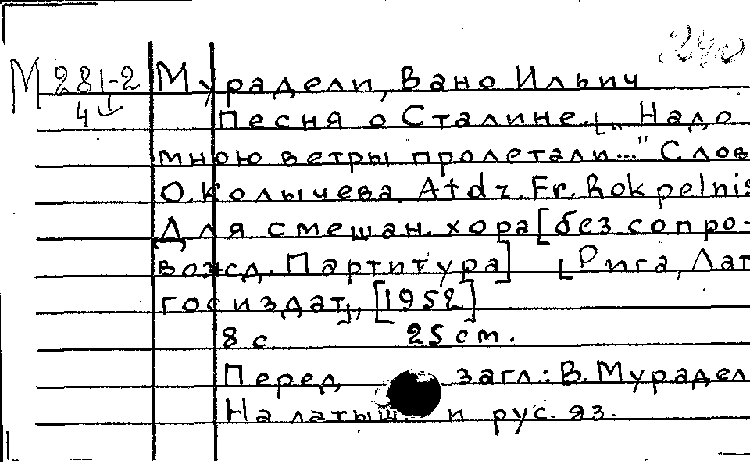 240
М 281-2
4
Мурадели, Вано Ильич
Песня о Сталине. [„Надо
мною ветры пролетали..." Слов
О. Колычева. Atdz. Fr. Rokpelnis
Для смешан. хора [без сопро-
вожд. Партитура] [Рига, Лат
госиздат], [1952]
8 с. 25 cm.
Перед загл: В. Мурадел
На латыш. и рус. яз.